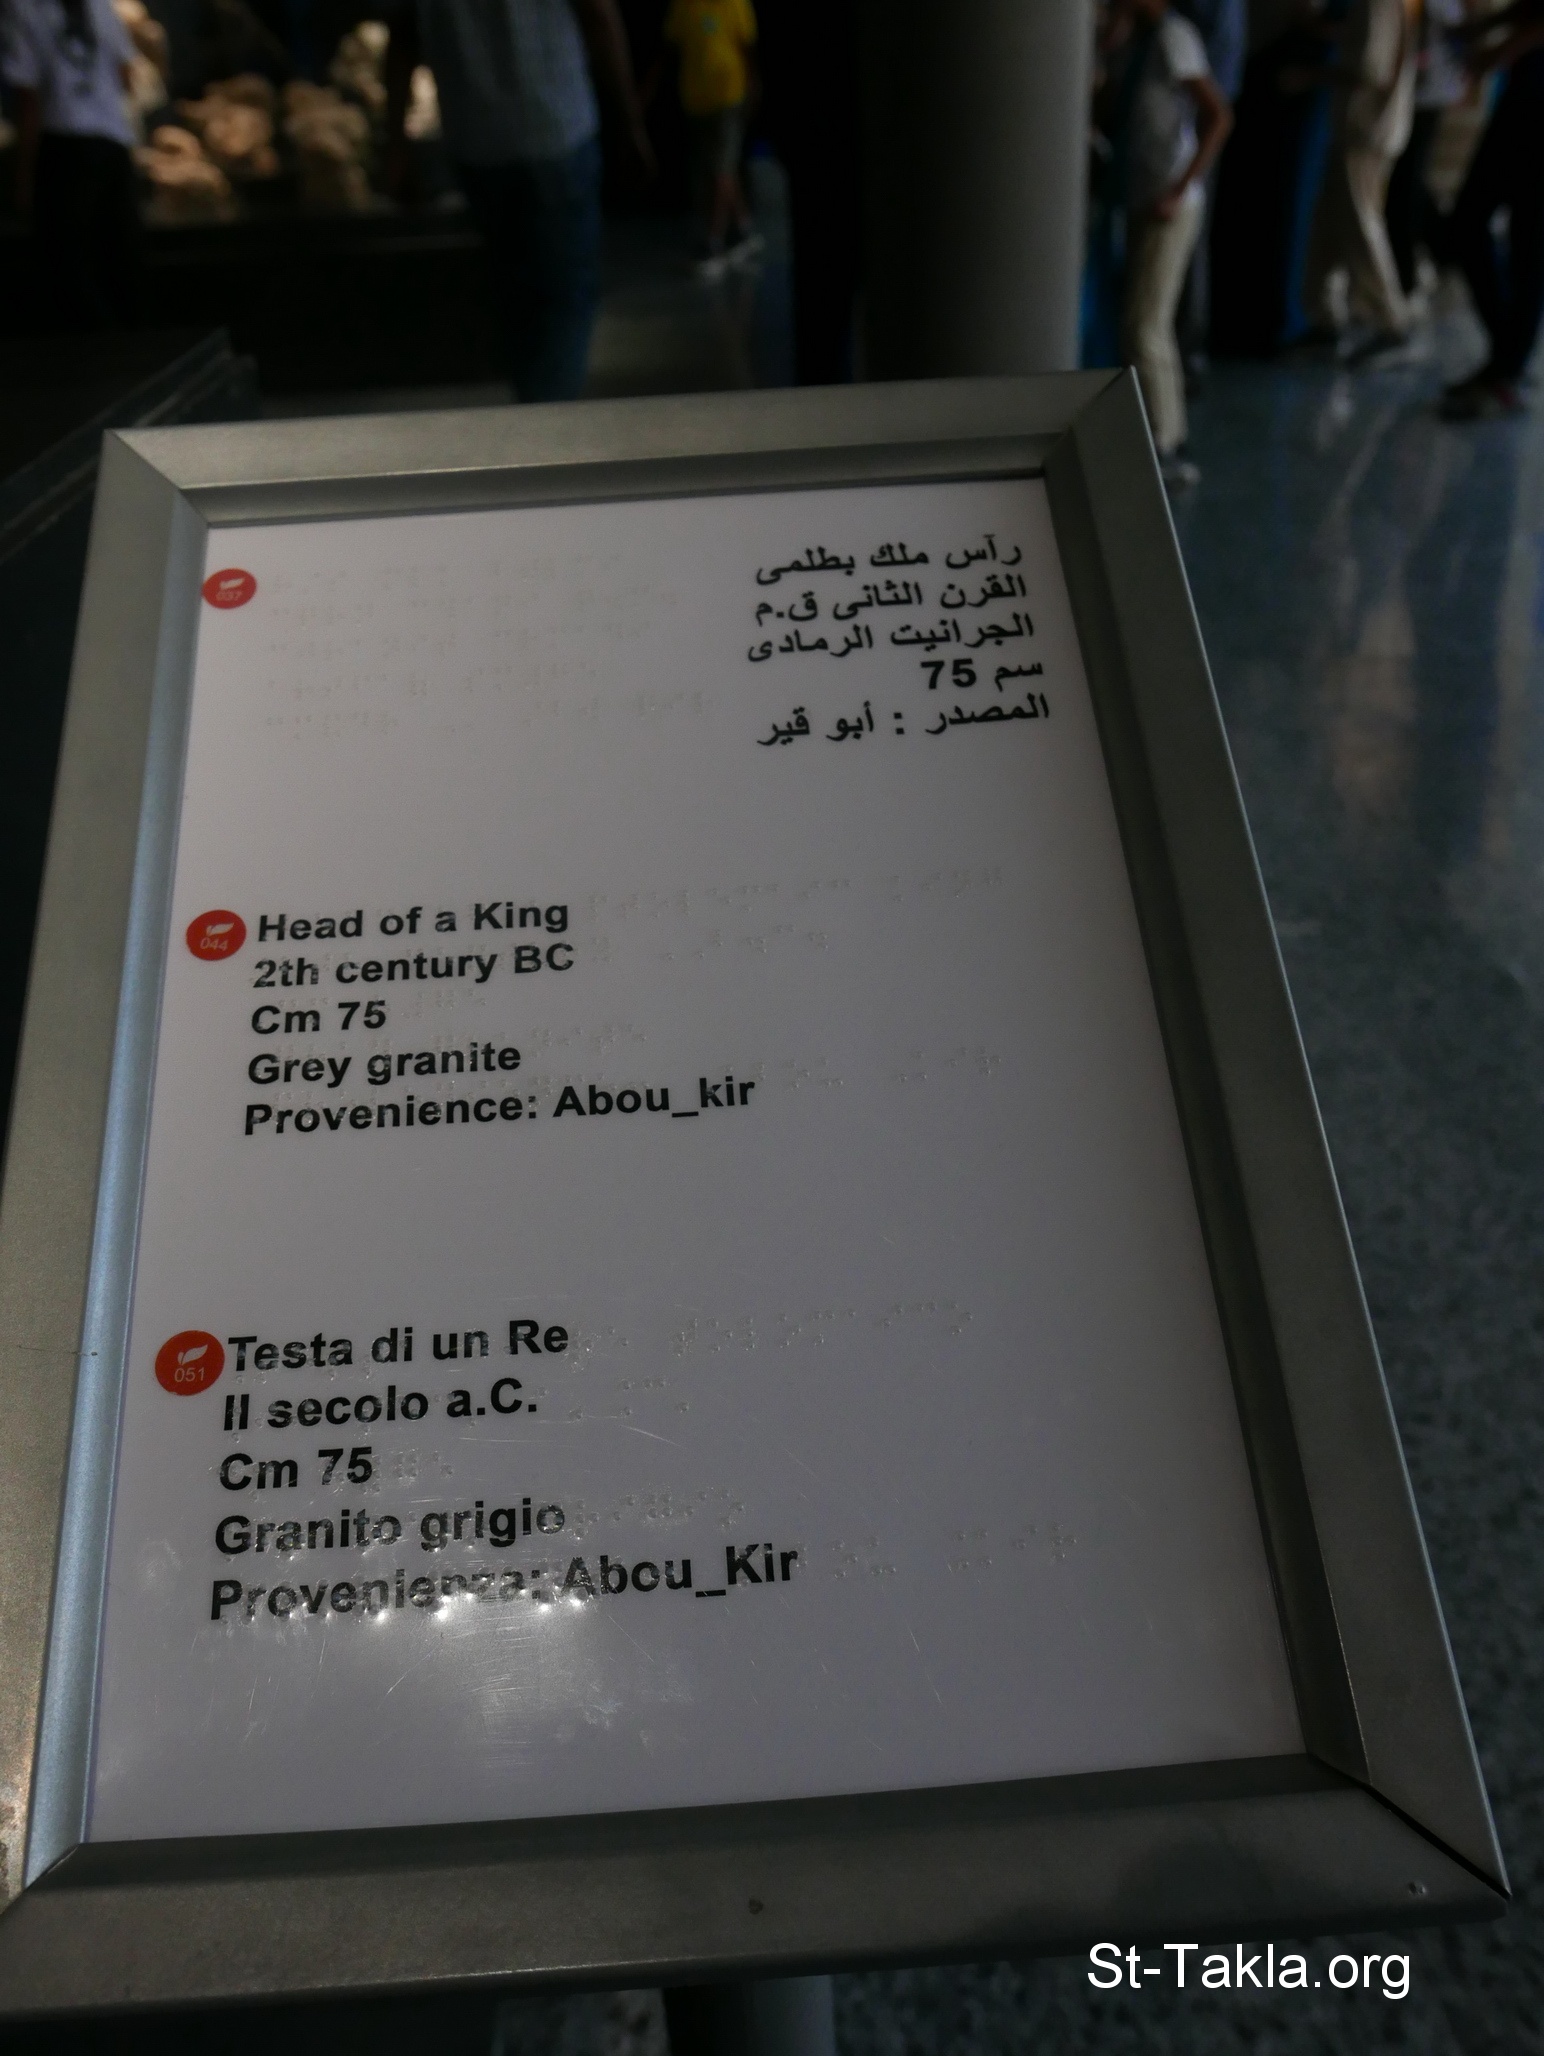 037
رآس ملك بطلمى
القرن الثانى ق.م
الجرانيت الرمادى
سم 75
المصدر : أبو قير
044
Head of a King
2th century BC
Cm 75
Grey granite
Provenience: Abou_kir
051
Testa di un Re
II secolo a.C.
Cm 75
Granito grigio
Provenienza: Abou_Kir
St-Takla.org